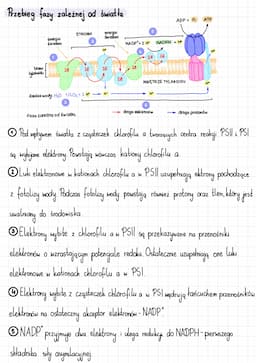 Przebieg fazy zależnej od światła
ADP + Pi ATP
energia świetlna
STROMA
energia świetlna
NADP⁺ + 2 NADPH +
błona tylakoidu
WNĘTRZE TYLAKOIDU
fotoliza wody H₂O
droga elektronów
droga protonów
① Pod wpływem światła z cząsteczek chlorofilu a tworzących centra reakcji PSII i PSI
są wybijane elektrony. Powstają wówczas kationy chlorofilu a.
② Luki elektronowe w kationach chlorofilu a w PSII uzupełniają elektrony pochodzące
z fotolizy wody. Podczas fotolizy wody powstają również protony oraz tlen, który jest
uwalniany do środowiska.
③ Elektrony wybite z chlorofilu a w PSII są przekazywane na przenośniki
elektronów o wzrastającym potencjale redoks. Ostatecznie uzupełniają one luki
elektronowe w kationach chlorofilu a w PSI.
④ Elektrony wybite z cząsteczek chlorofilu a w PSI wędrują łańcuchem przenośników
elektronów na ostateczny akceptor elektronów - NADP⁺
⑤ NADP⁺ przyjmuje dwa elektrony i ulega redukcji do NADPH - pierwszego
składnika siły asymilacyjnej.